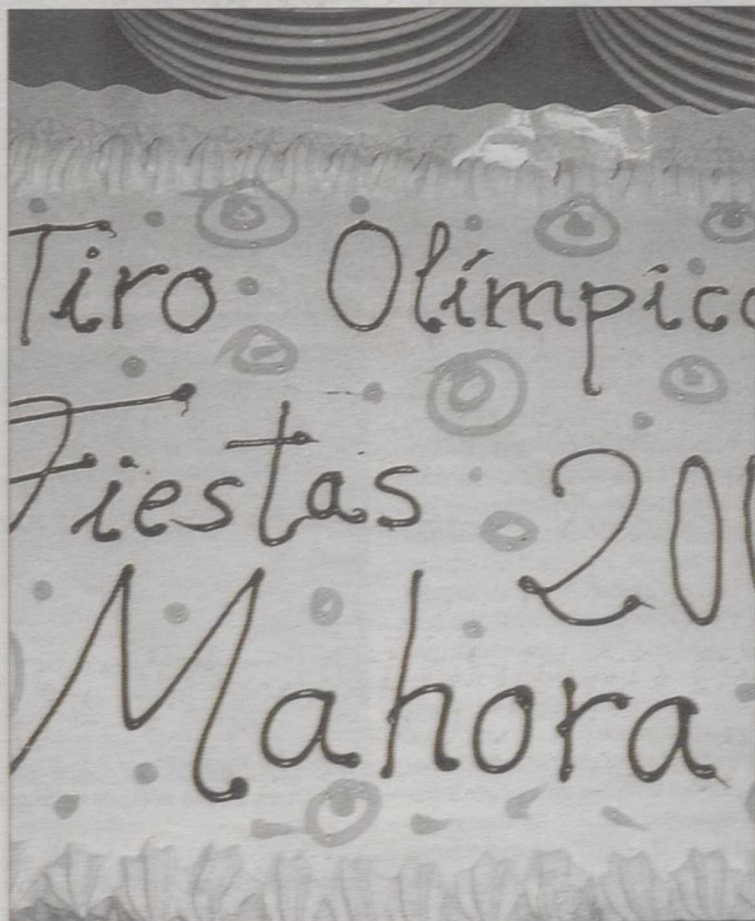 Tiro Olímpico
Fiestas
Mahora